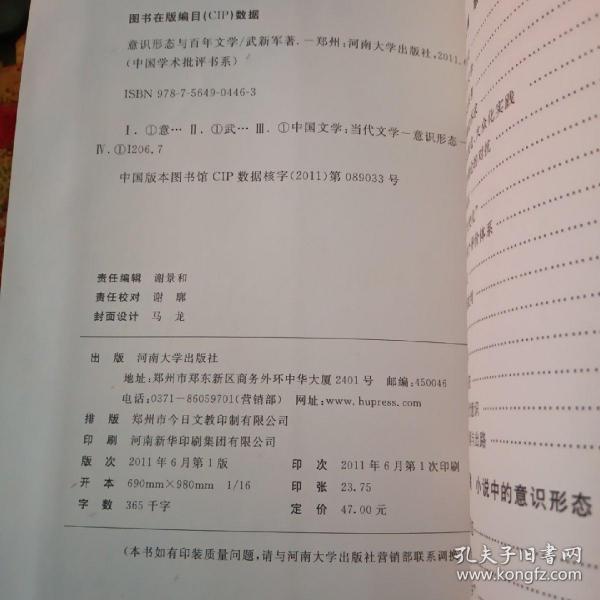 图书在版编目(CIP)数据
意识形态与百年文学/武新军著.—郑州:河南大学出版社,2011.
(中国学术批评书系)
ISBN 978-7-5649-0446-3
Ⅰ.①意… Ⅱ.①武… Ⅲ.①中国文学:当代文学-意识形态-
Ⅳ.①I206.7
中国版本图书馆CIP数据核字(2011)第089033号
责任编辑 谢景和
责任校对 谢 鄏
封面设计 马 龙
出 版 河南大学出版社
地址:郑州市郑东新区商务外环中华大厦2401号 邮编:450046
电话:0371-86059701(营销部) 网址:www.hupress.com
排 版 郑州市今日文教印制有限公司
印 刷 河南新华印刷集团有限公司
版 次 2011年6月第1版 印 次 2011年6月第1次印刷
开 本 690mm×980mm 1/16 印 张 23.75
字 数 365千字 定 价 47.00元
(本书如有印装质量问题,请与河南大学出版社营销部联系调换
大众化实践
评价体系
与出路
小说中的意识形态
孔夫子旧书网
www.kongfz.com